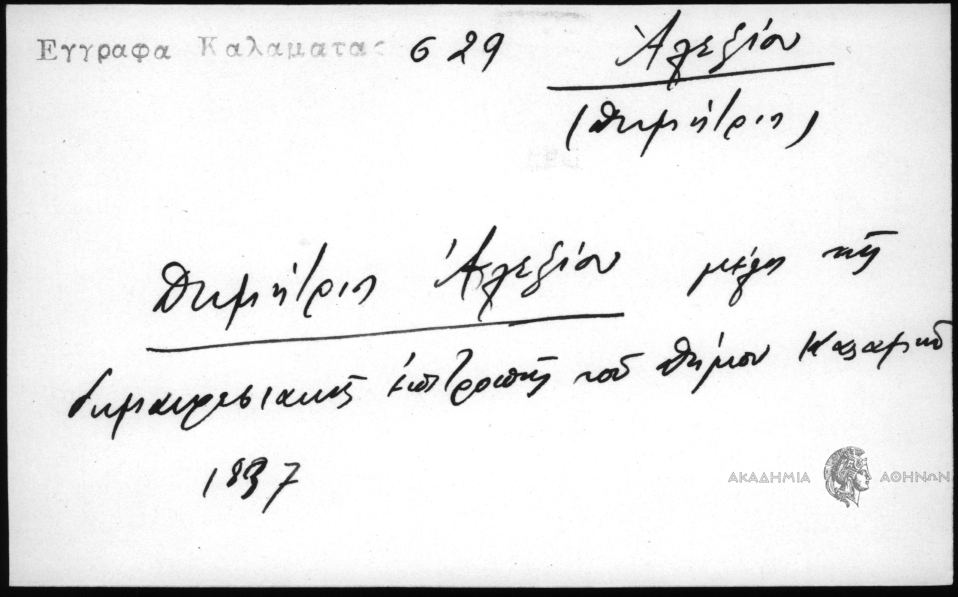 Εγγραφα Καλαματας 629 Ἀλεξίου
(Δημήτριος)
Δημήτριος Ἀλεξίου μέλος τῆς
δημαιρεσιακῆς ἐπιτροπῆς τοῦ Δήμου
1837
ΑΚΑΔΗΜΙΑ ΑΘΗΝΩΝ